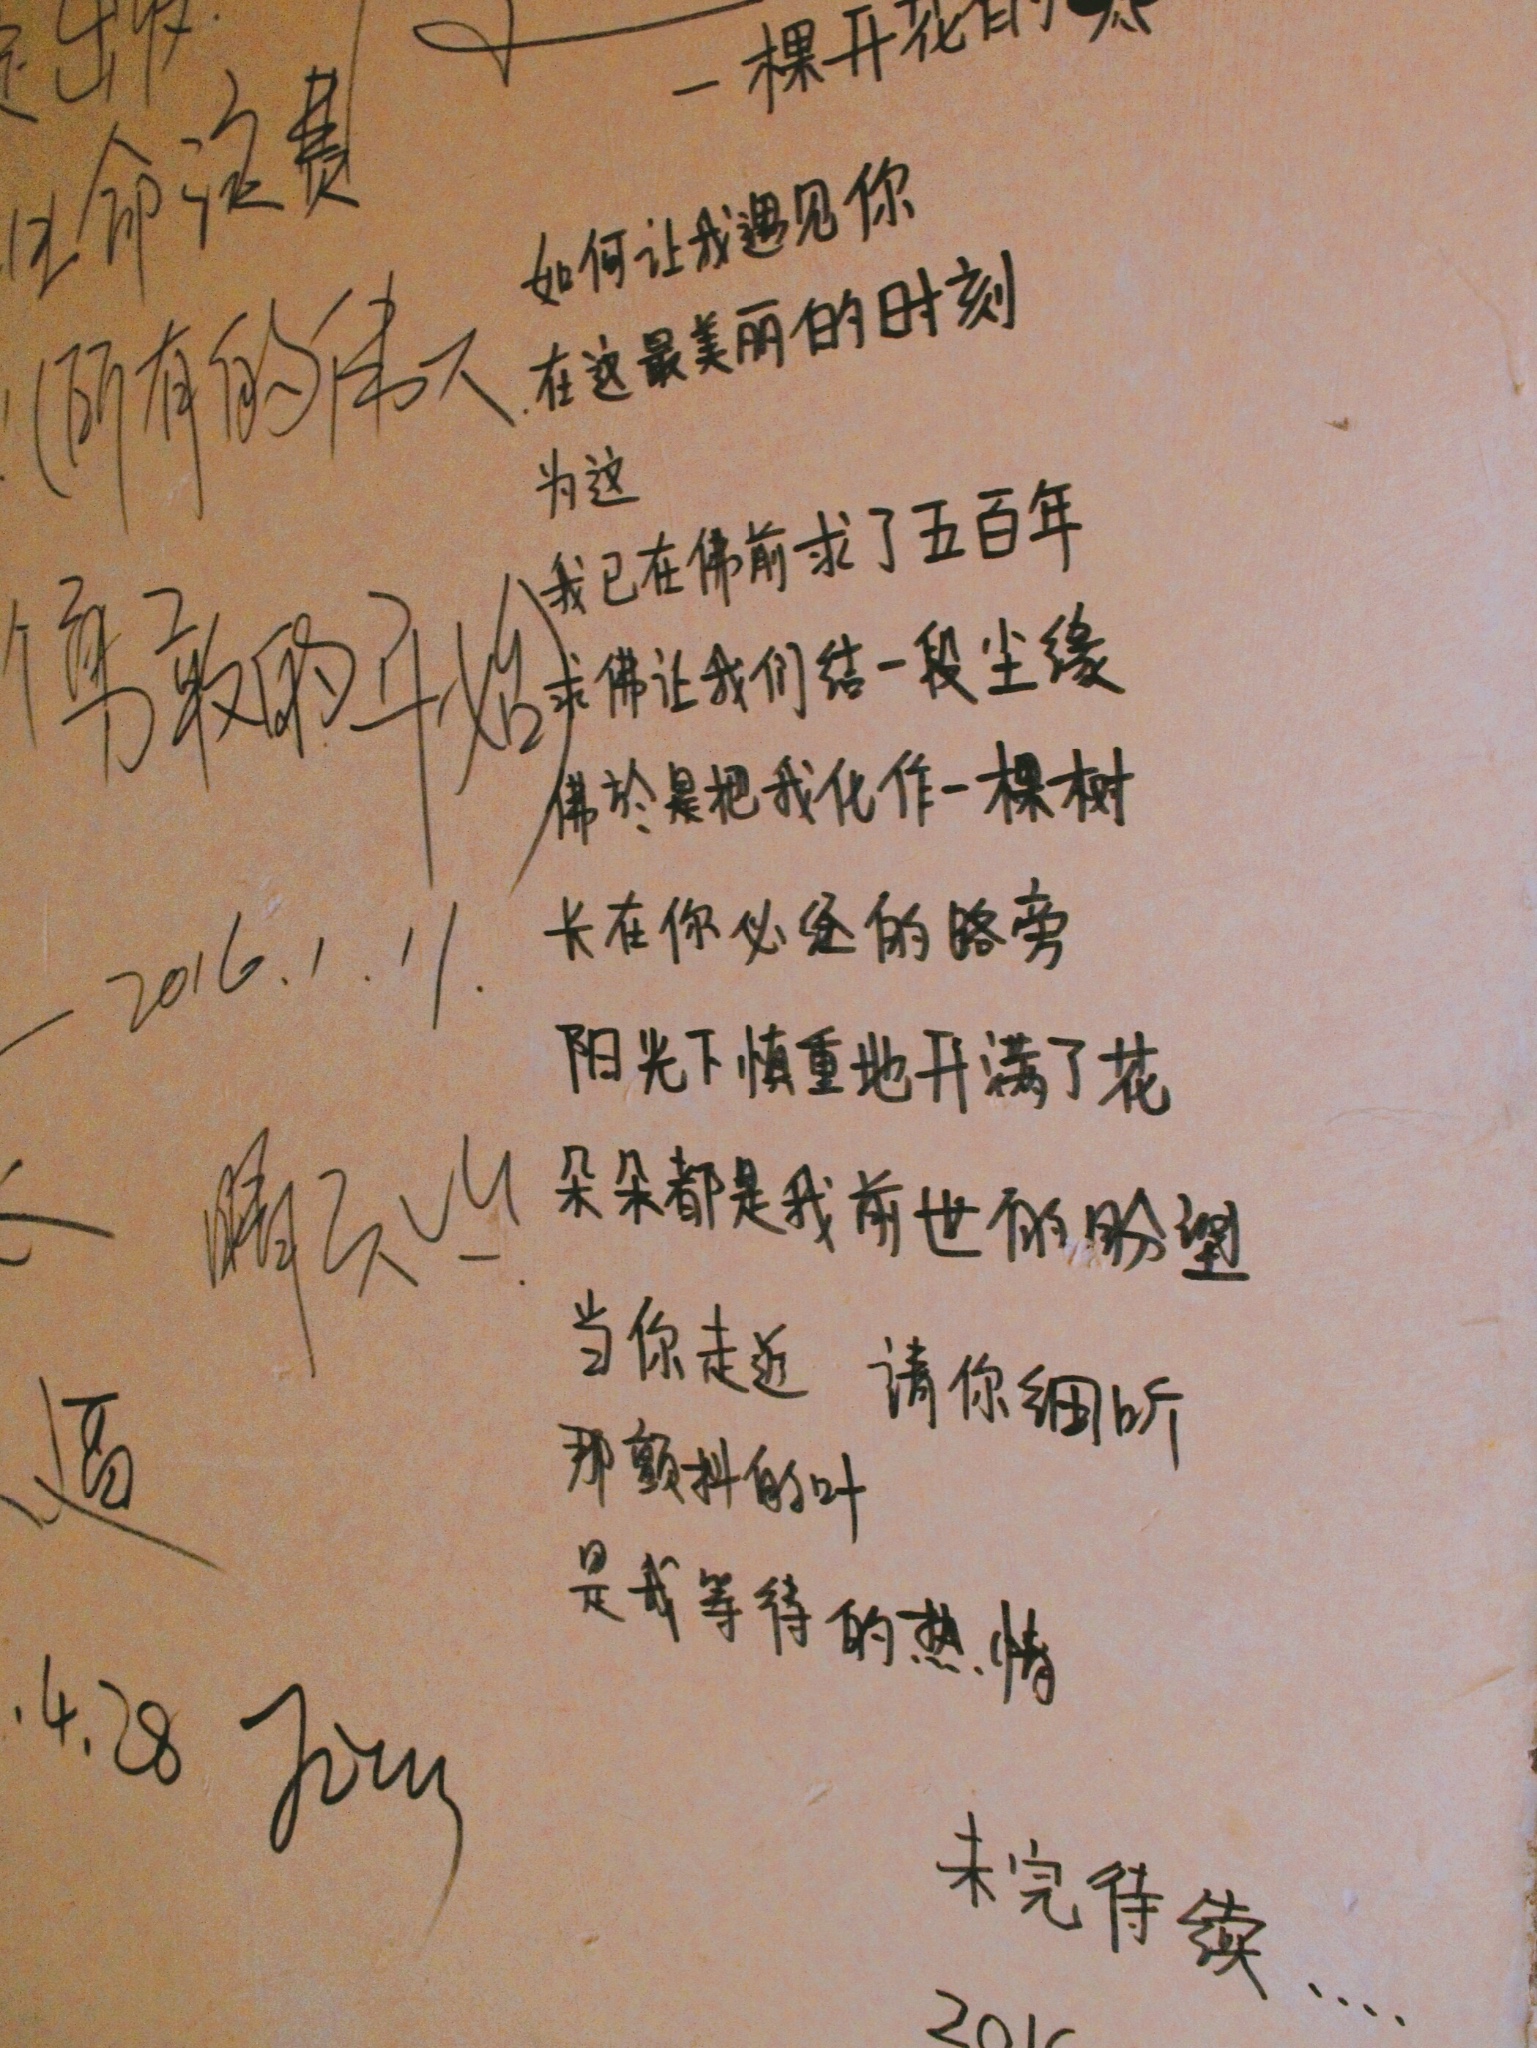 一棵开花的
如何让我遇见你
在这最美丽的时刻
为这
我已在佛前求了五百年
求佛让我们结一段尘缘
佛於是把我化作一棵树
长在你必经的路旁
阳光下慎重地开满了花
朵朵都是我前世的盼望
当你走近 请你细听
那颤抖的叶
是我等待的热情
未完待续....
所有的伟大
勇敢的开始)
—2016.1.11.
.4.28